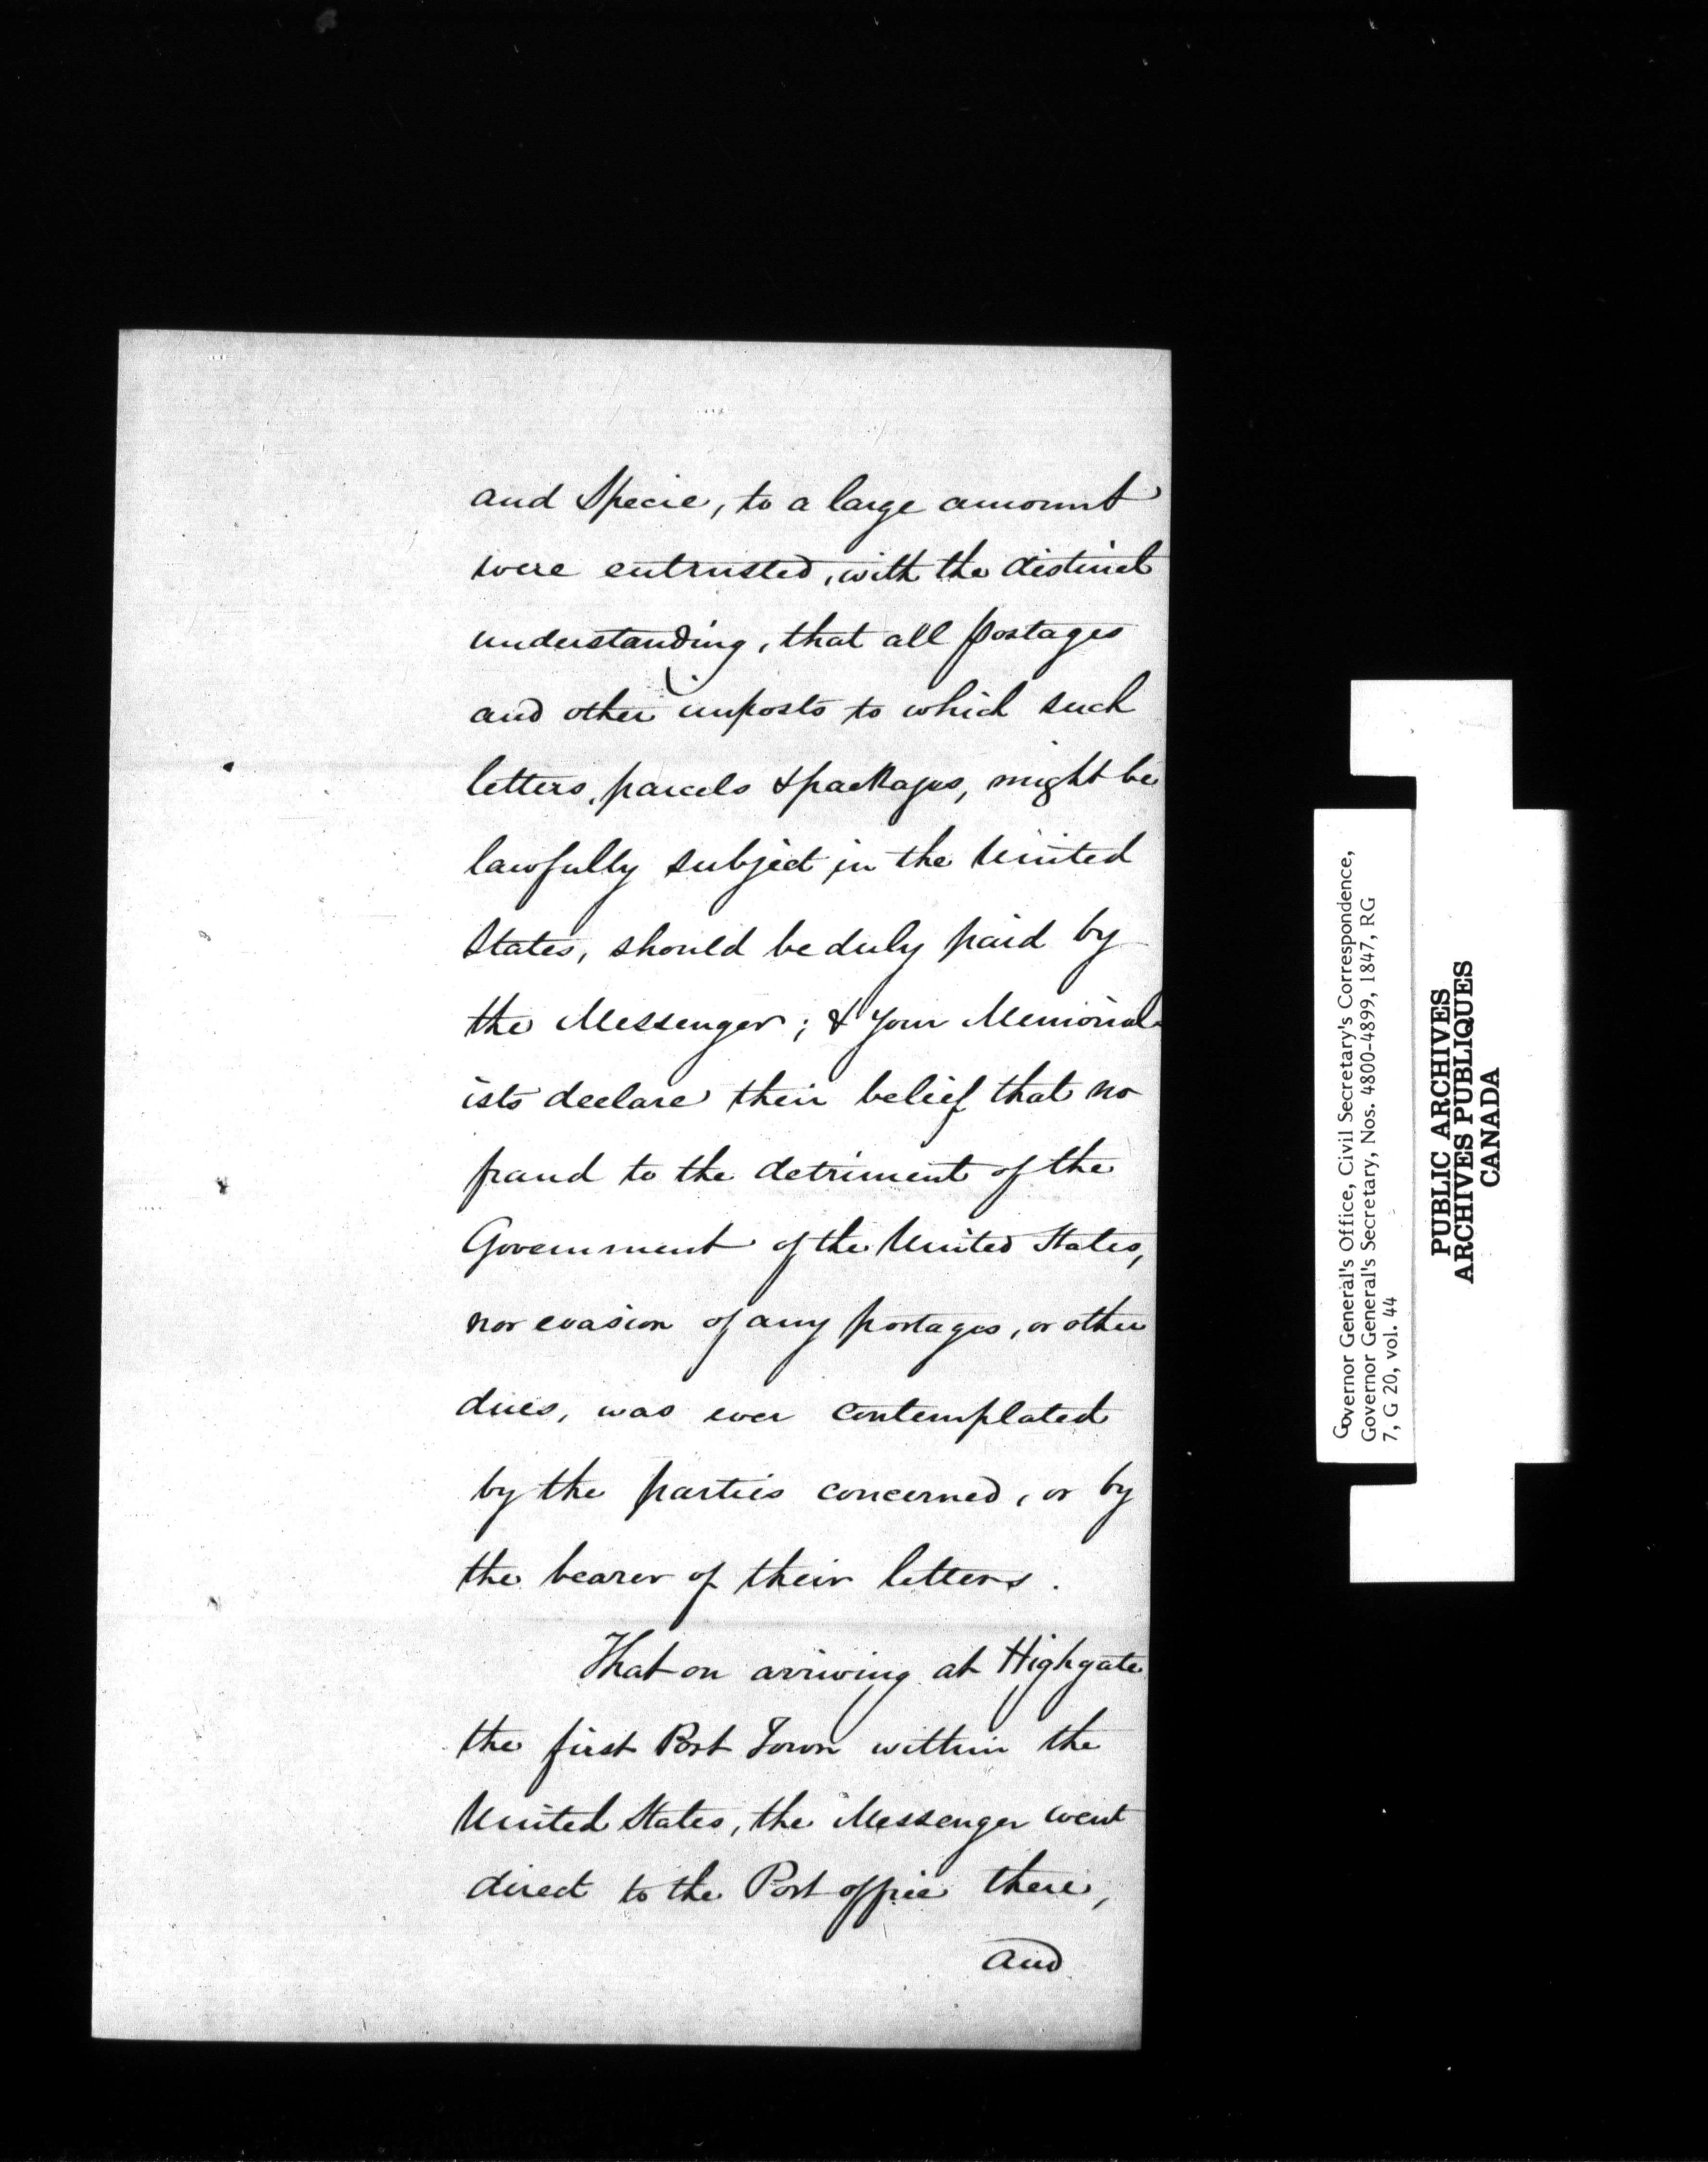 and Specie, to a large amount
were entrusted, with the distinct
understanding, that all postages
and other imposts to which such
letters, parcels & packages, might be
lawfully subject in the United
States, should be duly paid by
the Messenger; & Your Memorial-
ists declare their belief that no
fraud to the detriment of the
Government of the United States,
nor evasion of any postages, or other
dues, was ever contemplated
by the parties concerned, or by
the bearer of their letters.
That on arriving at Highgate
the first Post Town within the
United States, the Messenger went
direct to the Post office there,
and
Governor General's Office, Civil Secretary's Correspondence,
Governor General's Secretary, Nos. 4800-4899, 1847, RG
7, G 20, vol. 44
PUBLIC ARCHIVES
ARCHIVES PUBLIQUES
CANADA